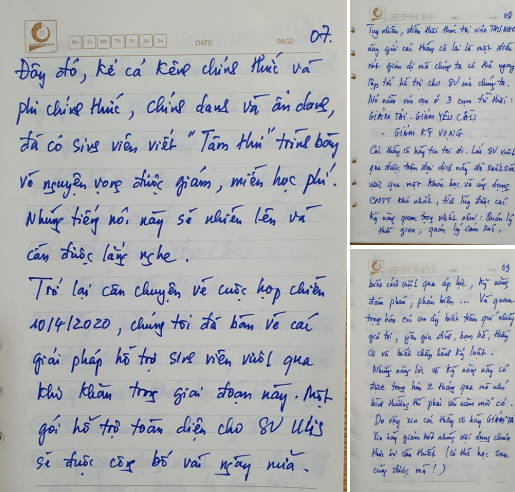 Mo Tu We Th Fr Sa Su
DATE:
PAGE: 07.
Đây đó, kể cả kênh chính thức và
phi chính thức, chính danh và ẩn danh,
đã có sinh viên viết "Tâm thư" trình bày
về nguyện vọng được giảm, miễn học phí.
Những tiếng nói này sẽ nhiều lên và
cần được lắng nghe.
Trở lại câu chuyện về cuộc họp chiều
10/4/2020, chúng tôi đã bàn về các
giải pháp hỗ trợ sinh viên vượt qua
khó khăn trong giai đoạn này. Một
gói hỗ trợ toàn diện cho SV
sẽ được công bố vài ngày nữa.
08
Tuy nhiên, điều thôi thúc tôi viết TÂM THƯ
này gửi các thầy cô lại là một điều
rất giản dị mà chúng ta có thể ngay
lập tức hỗ trợ cho SV của chúng ta.
Nó nằm vỏn vẹn ở 3 cụm từ thôi:
GIẢM TẢI - GIẢM YÊU CẦU
- GIẢM KỲ VỌNG
Các thầy cô hãy tin tôi đi. Lứa SV vượt
qua được trận đại dịch này đã xuất sắc
vượt qua một khóa học về ứng dụng
CNTT khó nhất, tích lũy được các
kỹ năng quan trọng nhất như: Quản lý
thời gian, quản lý cảm xúc,
09
biết cách vượt qua áp lực, kỹ năng
đàm phán, phản biện ... Và quan
trọng hơn cả em ấy biết trân quí những
giá trị, yêu gia đình, bạn bè, thầy
cô và biết chấp hành kỷ luật.
Những năng lực và kỹ năng này có
được trong hơn 2 tháng qua mà nếu
bình thường thì phải vài năm mới có.
Do vậy xin các thầy cô hãy GIẢM TẢI
Xin hãy giảm bớt những nội dung chưa
thực sự cần thiết (có thể học sau
cũng được mà!)